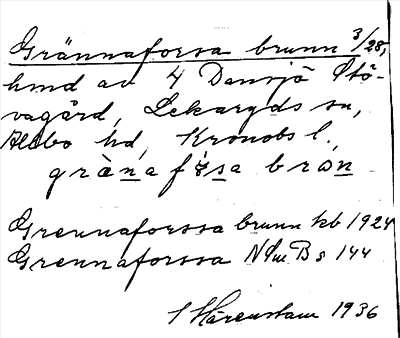 Grännaforsa brunn 3/28,
hmd av 4 Dansjö Stö-
vagård, Lekaryds sn,
Allbo hd, Kronobs l.
gräna fɷsa brɷn
Grennaforssa brunn kb 1924
Grennaforssa NSm B s 144
Härenstam 1936